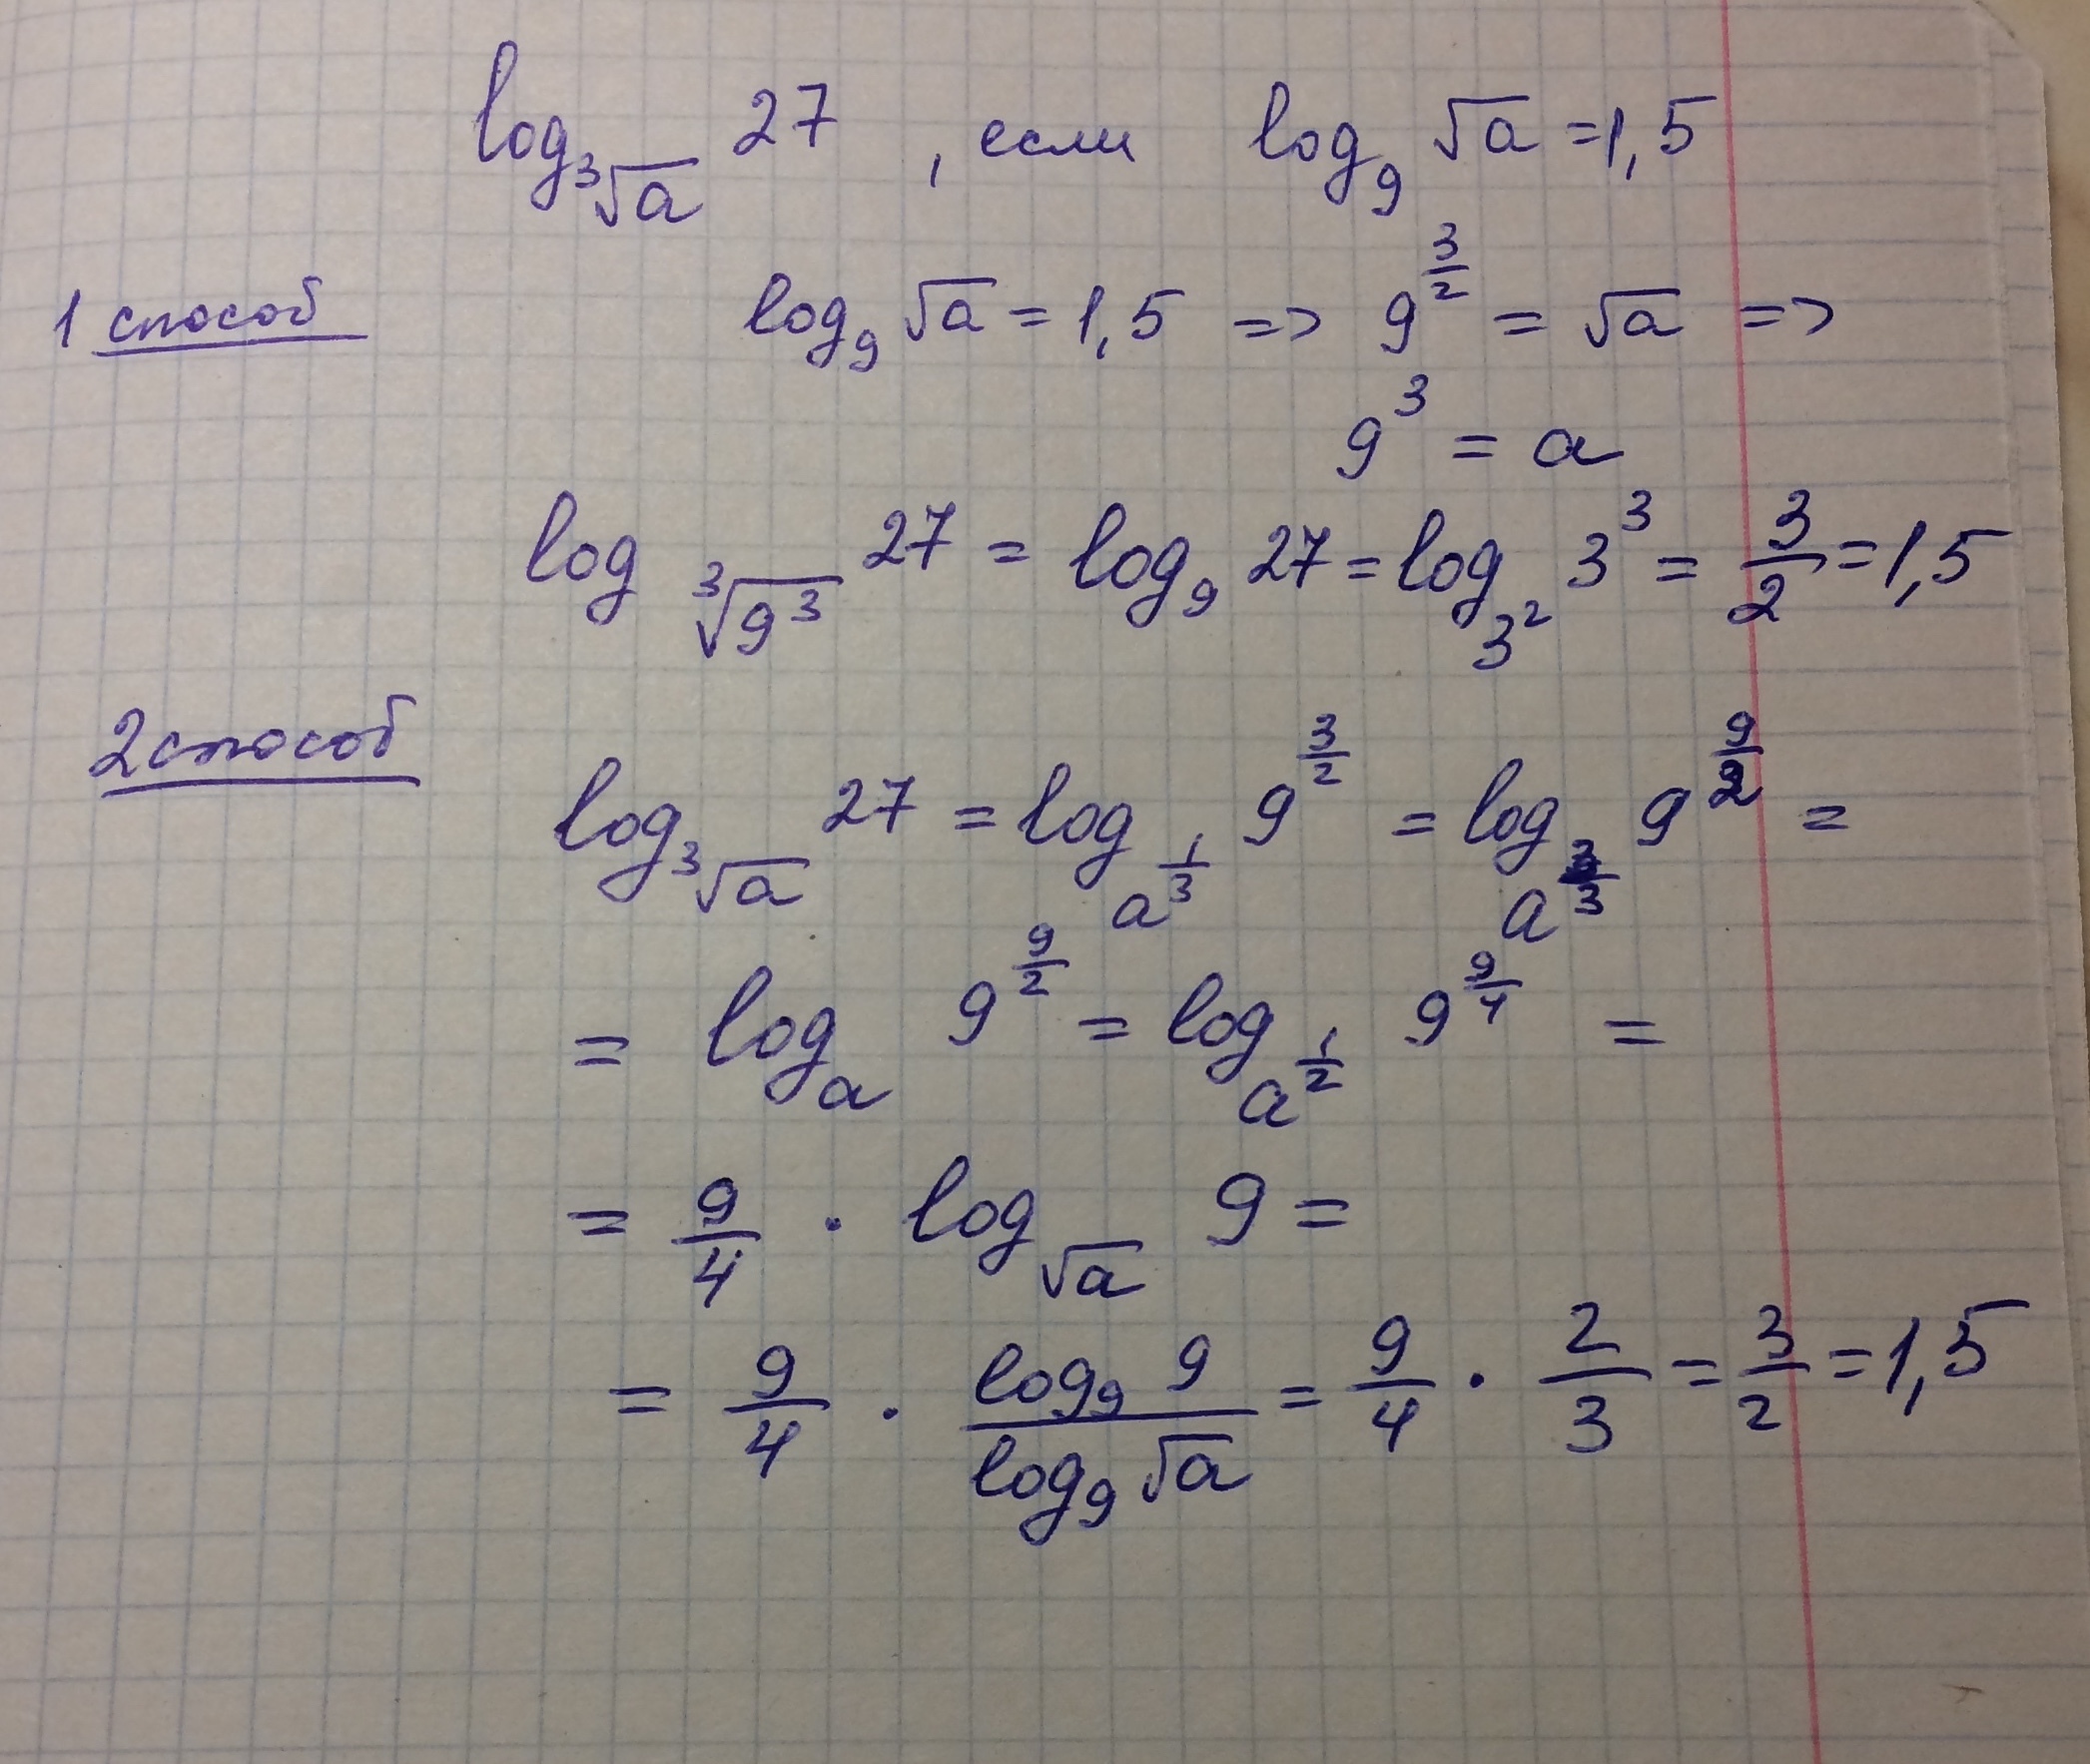 log_∛a 27 , если log₉ √a = 1,5
1 способ log₉ √a = 1,5 => 9^(3/2) = √a =>
9³ = a
log_∛(9³) 27 = log₉ 27 = log_(3²) 3³ = 3/2 = 1,5
2 способ
log_∛a 27 = log_(a^(1/3)) 9^(3/2) = log_(a^(3/3)) 9^(9/2) =
= log_a 9^(9/2) = log_(a^(1/2)) 9^(9/4) =
= 9/4 · log_√a 9 =
= 9/4 · (log₉ 9)/(log₉ √a) = 9/4 · 2/3 = 3/2 = 1,5